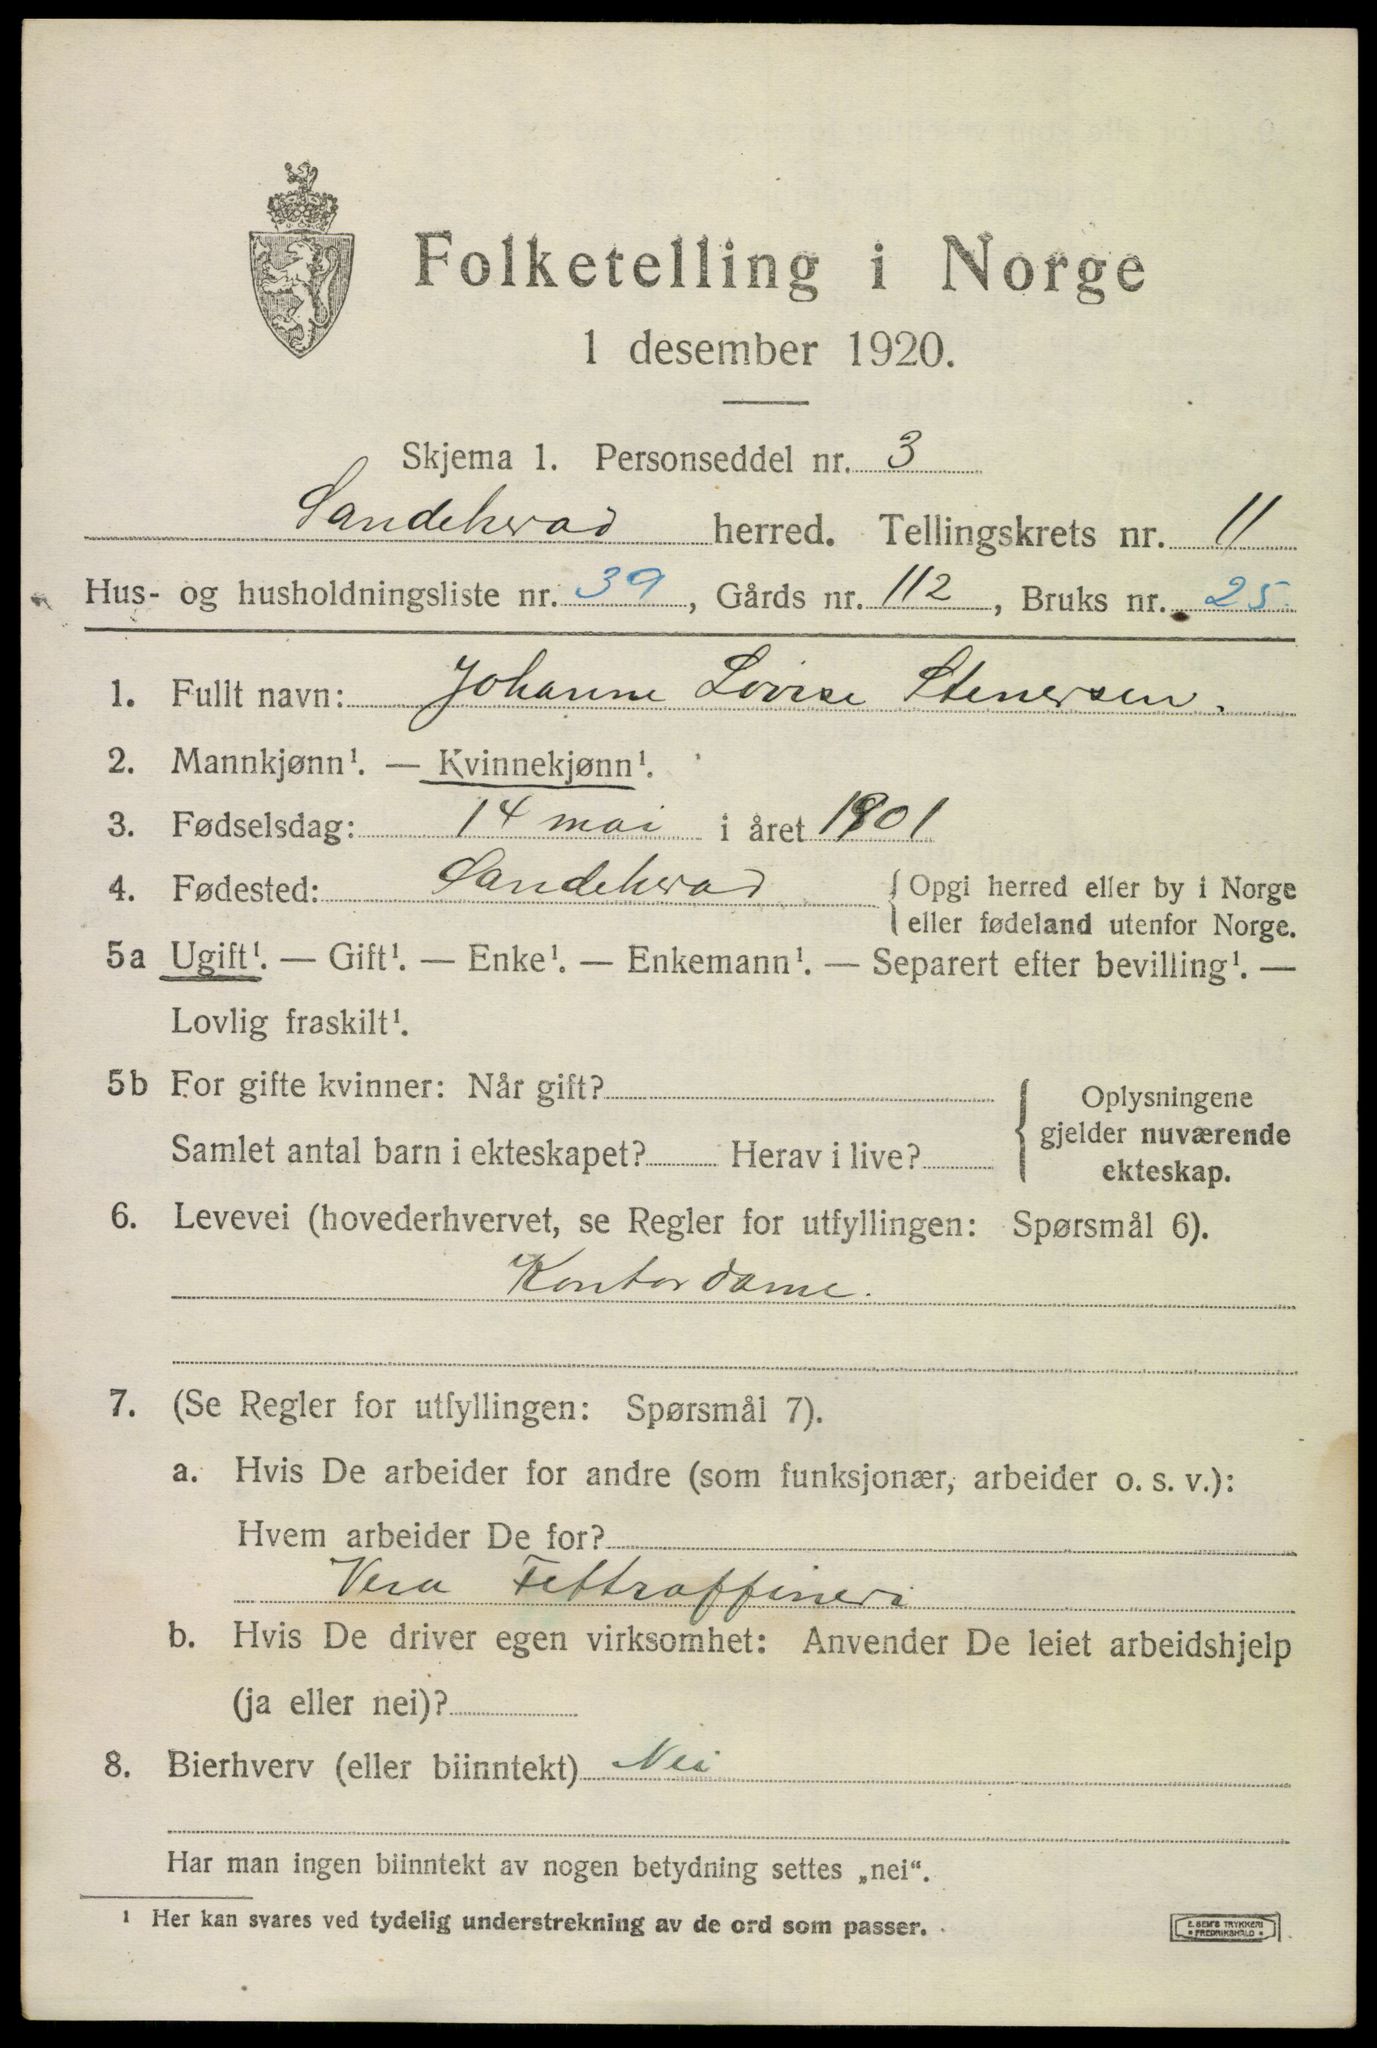 Folketelling i Norge
1 desember 1920.
Skjema 1. Personseddel nr. 3
Sandeherad herred. Tellingskrets nr. 11
Hus- og husholdningsliste nr. 39, Gårds nr. 112, Bruks nr. 25.
1. Fullt navn: Johanne Lovise Stenersen.
2. Mannkjønn¹. — Kvinnekjønn¹.
3. Fødselsdag: 14 mai i året 1901
4. Fødested: Sandeherad { Opgi herred eller by i Norge
eller fødeland utenfor Norge.
5a Ugift¹. — Gift¹. — Enke¹. — Enkemann¹. — Separert efter bevilling¹. —
Lovlig fraskilt¹.
5b For gifte kvinner: Når gift?
Samlet antal barn i ekteskapet? Herav i live?
Oplysningene
gjelder nuværende
ekteskap.
6. Levevei (hovederhvervet, se Regler for utfyllingen: Spørsmål 6).
Kontordame.
7. (Se Regler for utfyllingen: Spørsmål 7).
a. Hvis De arbeider for andre (som funksjonær, arbeider o. s. v.):
Hvem arbeider De for?
Vera Fettraffineri
b. Hvis De driver egen virksomhet: Anvender De leiet arbeidshjelp
(ja eller nei)?
8. Bierhverv (eller biinntekt) Nei
Har man ingen biinntekt av nogen betydning settes „nei“.
¹ Her kan svares ved tydelig understrekning av de ord som passer.
E. SEM'S TRYKKERI
• FREDRIKSHALD •